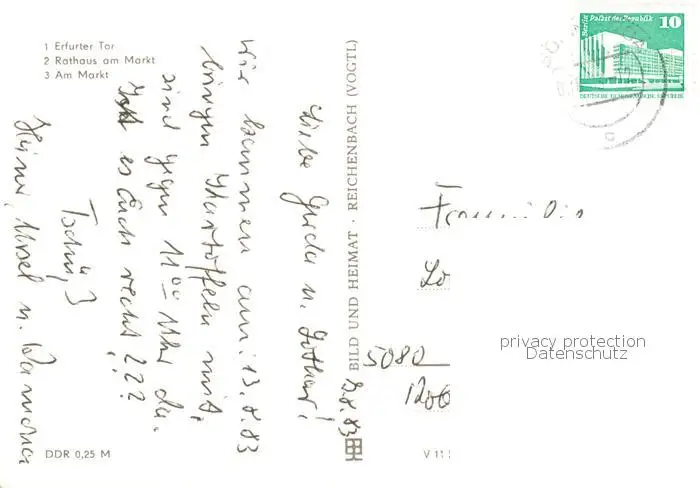 1 Erfurter Tor
2 Rathaus am Markt
3 Am Markt
Berlin Palast der Republik 10
DEUTSCHE DEMOKRATISCHE REPUBLIK
8.8.83
Liebe Gerda u. Lothar!
Wir kommen am: 13.8.83
bringen Kartoffeln mit,
sind gegen 11⁰⁰ Uhr da.
Ist es Euch recht???
Tschüß
Heiner, Ursel u. Ramona
BILD UND HEIMAT · REICHENBACH (VOGTL)
Familie
Lo
5080
privacy protection
Datenschutz
DDR 0,25 M
V 11